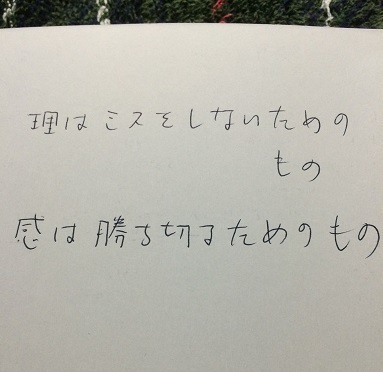 理はミスをしないための
もの
感は勝ち切るためのもの